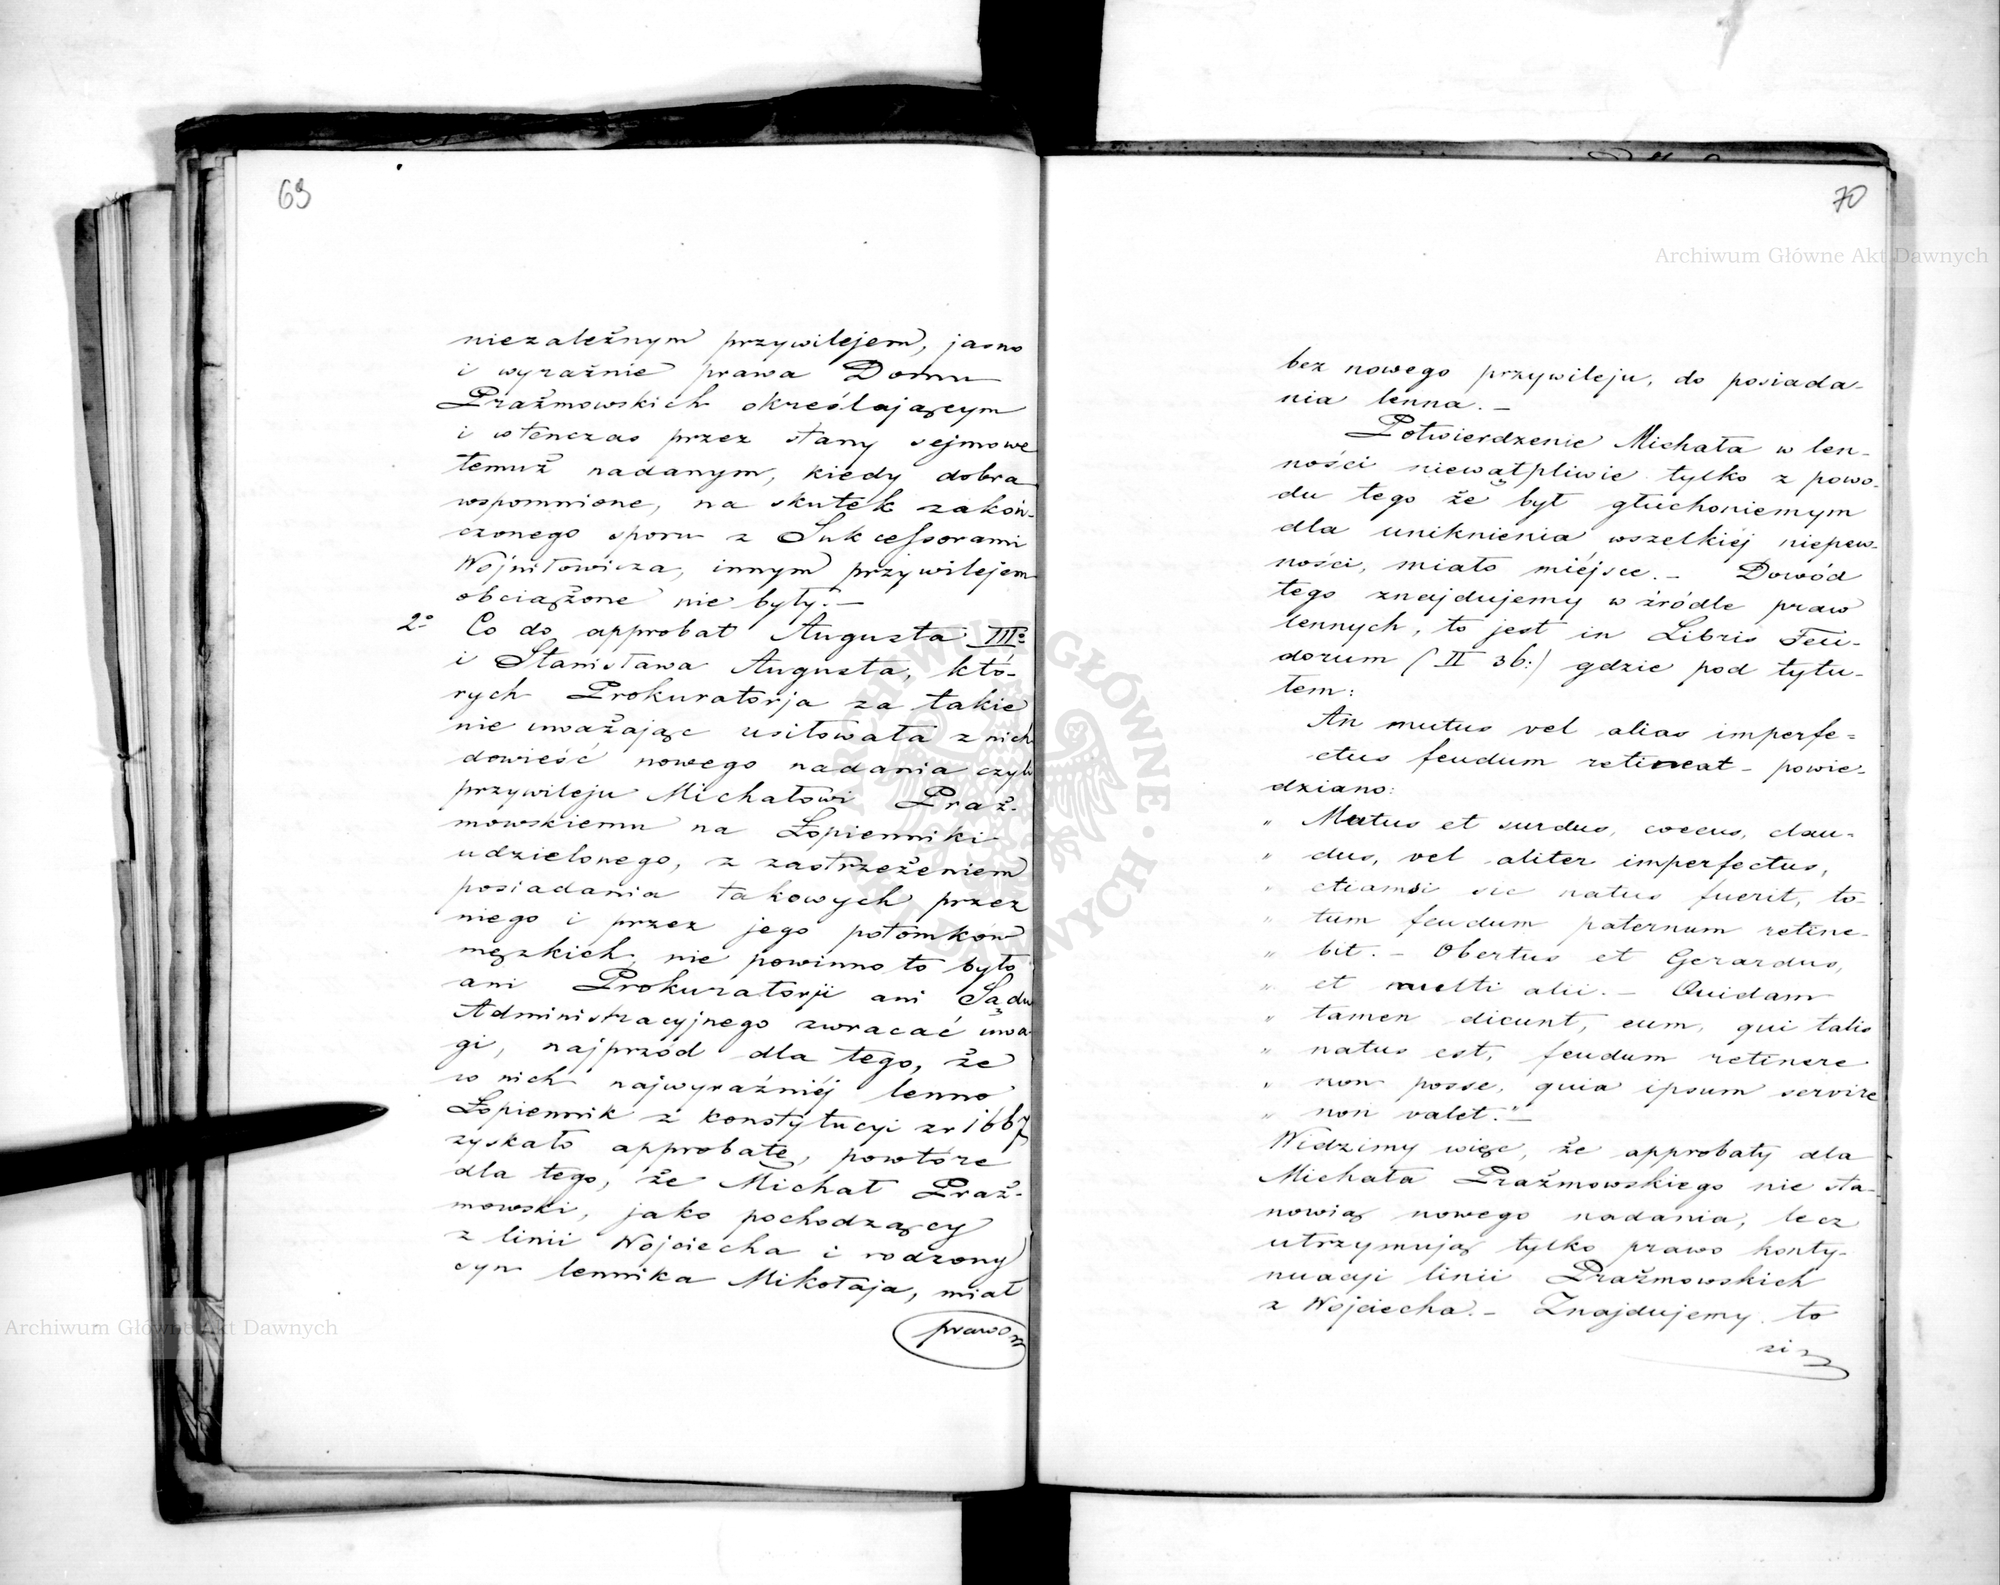 69
niezależnym przywilejem, jasno
i wyraźnie prawa Domu
Prażmowskich określającym
i wtenczas przez stany sejmowe
temuż nadanym, kiedy dobra
wspomnione, na skutek zakoń-
czonego sporu z Sukcessorami
Wojniłowicza, innym przywilejem
obciążone nie były. —
2o Co do approbat Augusta IIIo
i Stanisława Augusta, któ-
rych Prokuratorja za takie
nie uważając usiłowała z nich
dowieść nowego nadania czyli
przywileju Michałowi Praż-
mowskiemu na Łopienniki
udzielonego, z zastrzeżeniem
posiadania takowych przez
niego i przez jego potomków
męzkich, nie powinno to było
ani Prokuratorji ani Sądu
Administracyjnego zwracać uwa-
gi, najprzód dla tego, że
w nich najwyraźniéj lenno
Łopiennik z konstytucyi zr 1667
zyskało approbatę, powtóre
dla tego, że Michał Praż-
mowski, jako pochodzący
z linii Wojciecha i rodzony
syn lennika Mikołaja, miał
prawo
70
bez nowego przywileju, do posiada-
nia lenna. —
Potwierdzenie Michała w len-
ności niewątpliwie tylko z powo-
du tego że był głuchoniemym
dla uniknienia wszelkiéj niepew-
ności, miało miéjsce. — Dowód
tego znajdujemy w źródle praw
lennych, to jest in Libris Feu-
dorum (II 36:) gdzie pod tytu-
łem:
An mutus vel alias imperfe-
ctus feudum retineat — powie-
dziano:
„ Mutus et surdus, coecus, clau-
„ dus, vel aliter imperfectus,
„ etiamsi sic natus fuerit, to-
„ tum feudum paternum retine-
„ bit. — Obertus et Gerardus,
„ et multi alii. — Quidam
„ tamen dicunt, eum, qui talis
„ natus est, feudum retinere
„ non posse, quia ipsum servire
„ non valet." —
Widzimy więc, że approbaty dla
Michała Prażmowskiego nie sta-
nowią nowego nadania, lecz
utrzymują tylko prawo konty-
nuacyi linii Prażmowskich
z Wojciecha. — Znajdujemy to
Archiwum Główne Akt Dawnych
Archiwum Główne Akt Dawnych
ARCHIWUM GŁÓWNE AKT DAWNYCH